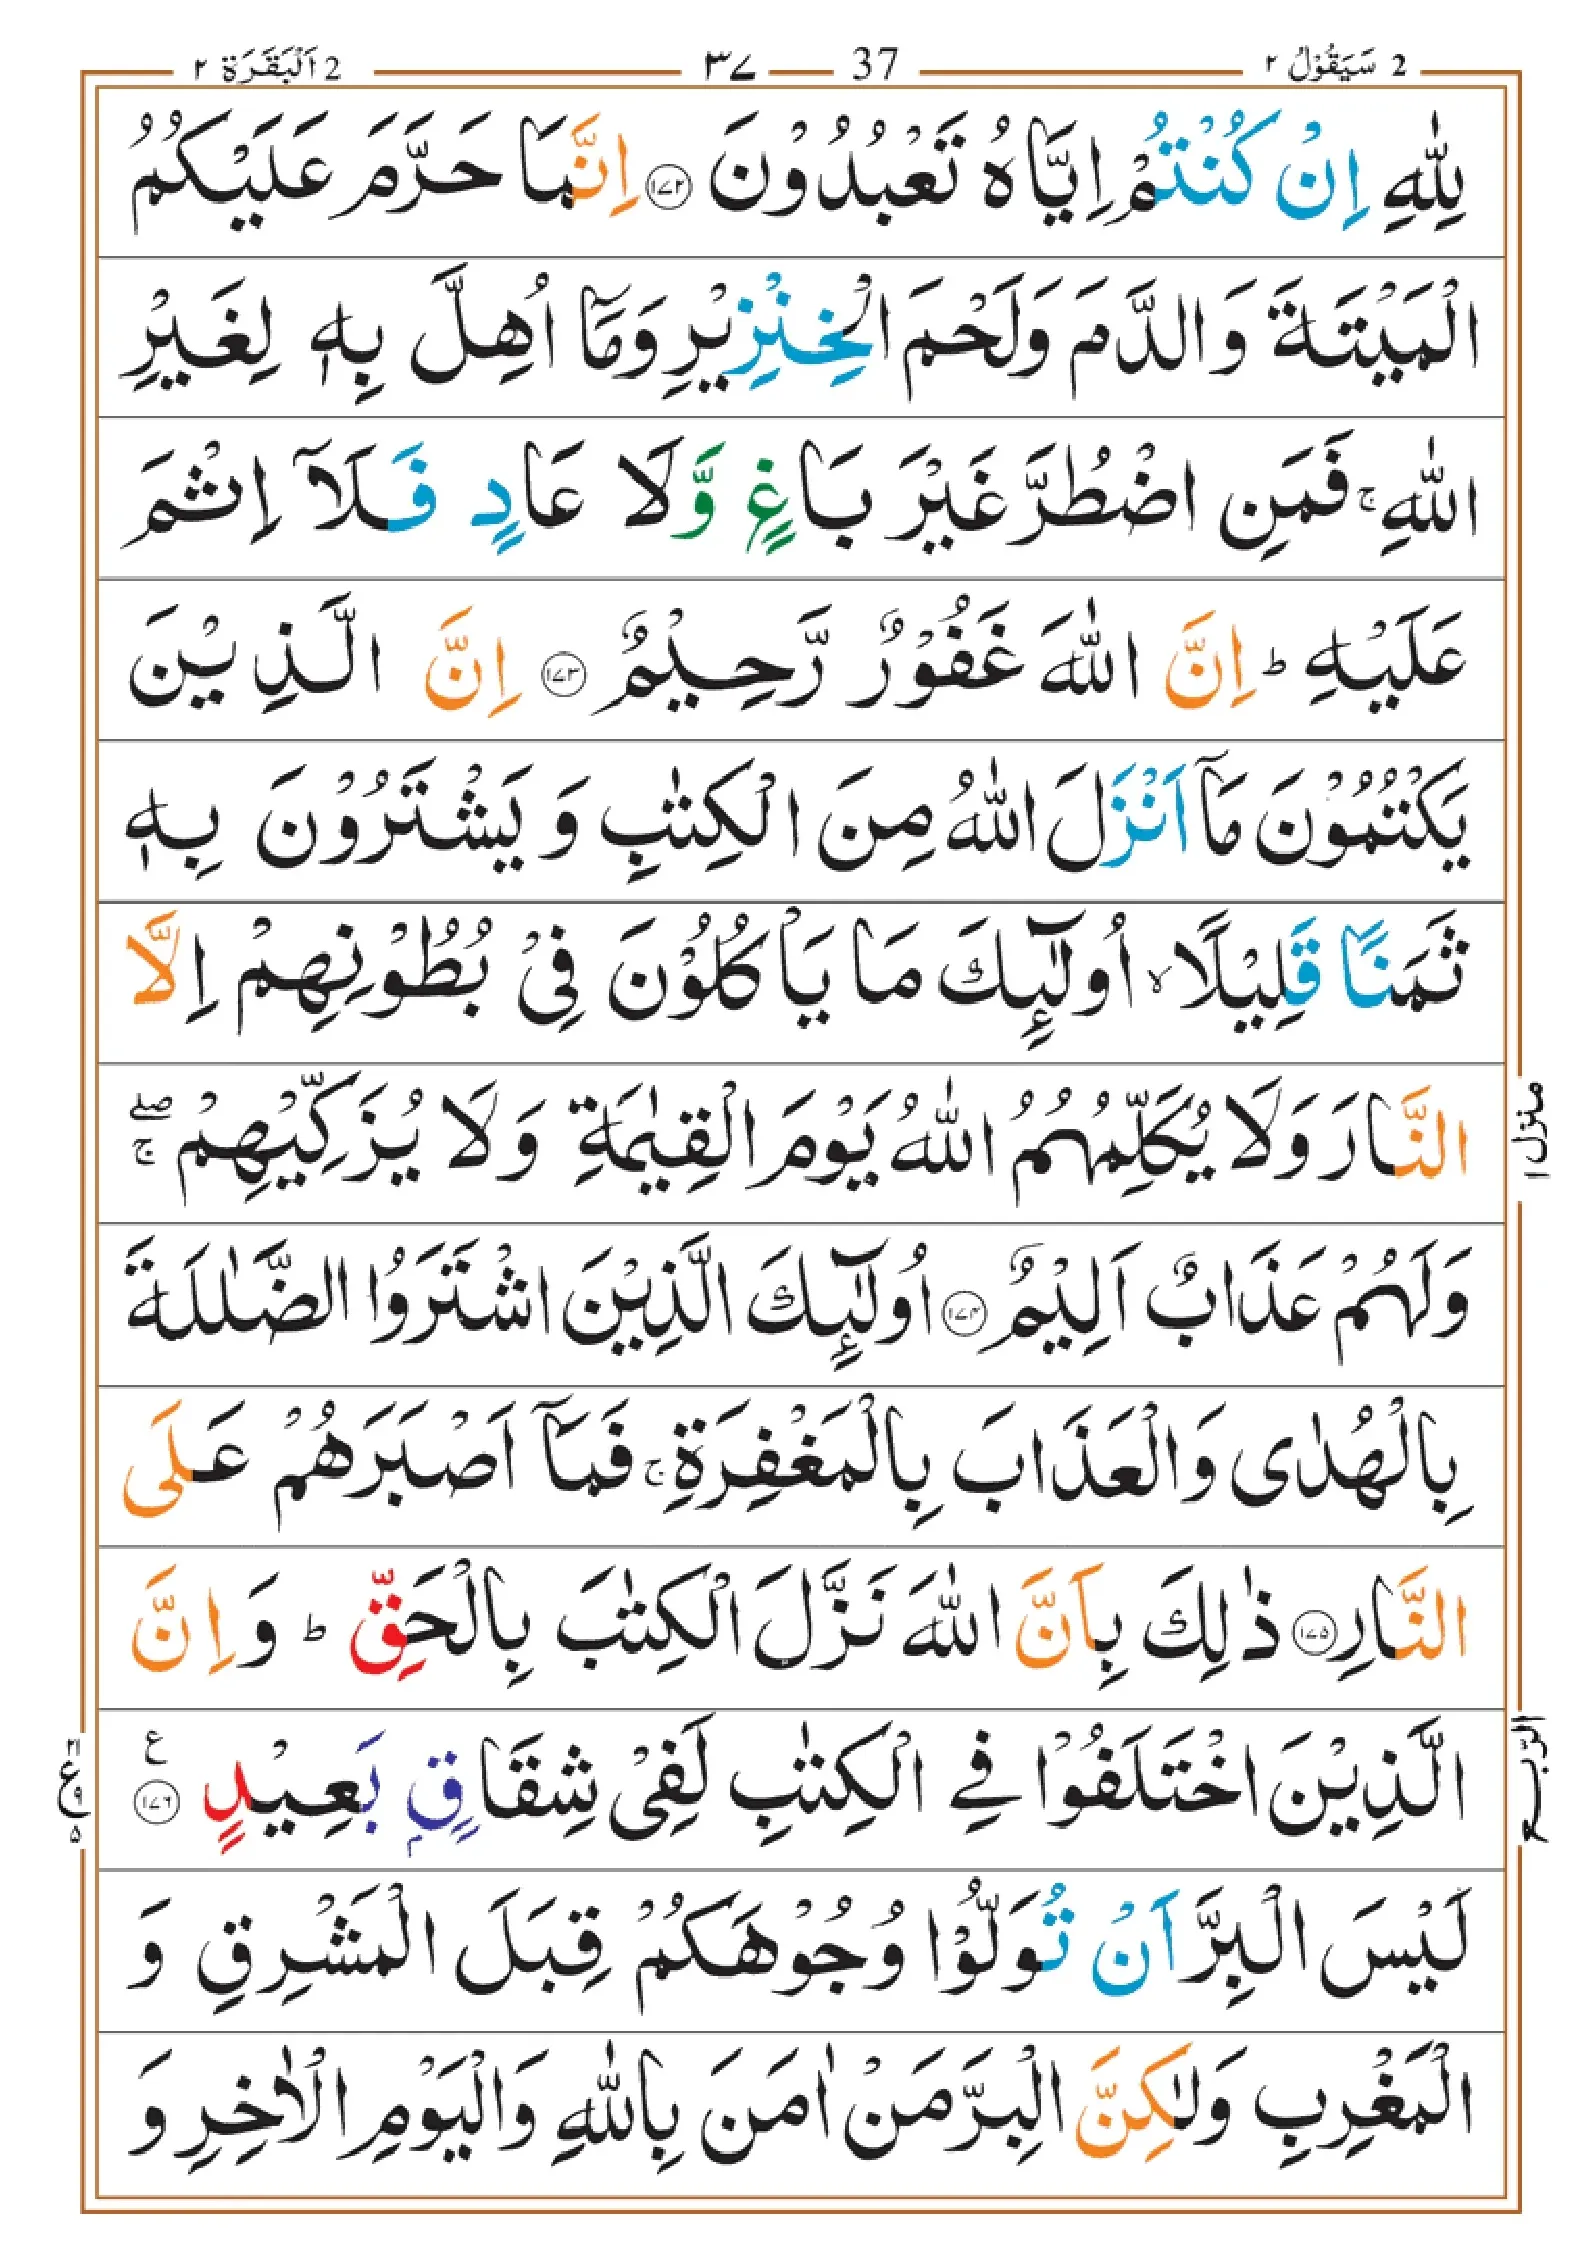 2 سَيَقُوْلُ ٢
37 — ٣٧
2 اَلْبَقَرَة ٢
لِلّٰهِ اِنْ كُنْتُمْ اِيَّاهُ تَعْبُدُوْنَ ۝١٧٢ اِنَّمَا حَرَّمَ عَلَيْكُمُ
الْمَيْتَةَ وَالدَّمَ وَلَحْمَ الْخِنْزِيْرِ وَمَآ اُهِلَّ بِهٖ لِغَيْرِ
اللّٰهِ ۚ فَمَنِ اضْطُرَّ غَيْرَ بَاغٍ وَّلَا عَادٍ فَلَآ اِثْمَ
عَلَيْهِ ؕ اِنَّ اللّٰهَ غَفُوْرٌ رَّحِيْمٌ ۝١٧٣ اِنَّ الَّذِيْنَ
يَكْتُمُوْنَ مَآ اَنْزَلَ اللّٰهُ مِنَ الْكِتٰبِ وَيَشْتَرُوْنَ بِهٖ
ثَمَنًا قَلِيْلًا ۙ اُولٰٓئِكَ مَا يَاْكُلُوْنَ فِيْ بُطُوْنِهِمْ اِلَّا
النَّارَ وَلَا يُكَلِّمُهُمُ اللّٰهُ يَوْمَ الْقِيٰمَةِ وَلَا يُزَكِّيْهِمْ ۖۚ
وَلَهُمْ عَذَابٌ اَلِيْمٌ ۝١٧٤ اُولٰٓئِكَ الَّذِيْنَ اشْتَرَوُا الضَّلٰلَةَ
بِالْهُدٰى وَالْعَذَابَ بِالْمَغْفِرَةِ ۚ فَمَآ اَصْبَرَهُمْ عَلَى
النَّارِ ۝١٧٥ ذٰلِكَ بِاَنَّ اللّٰهَ نَزَّلَ الْكِتٰبَ بِالْحَقِّ ؕ وَاِنَّ
الَّذِيْنَ اخْتَلَفُوْا فِي الْكِتٰبِ لَفِيْ شِقَاقٍۭ بَعِيْدٍ ۝١٧٦ ع
لَيْسَ الْبِرَّ اَنْ تُوَلُّوْا وُجُوْهَكُمْ قِبَلَ الْمَشْرِقِ وَ
الْمَغْرِبِ وَلٰكِنَّ الْبِرَّ مَنْ اٰمَنَ بِاللّٰهِ وَالْيَوْمِ الْاٰخِرِ وَ
منزل ١
الرّبع
٢١
ع ٩
٥